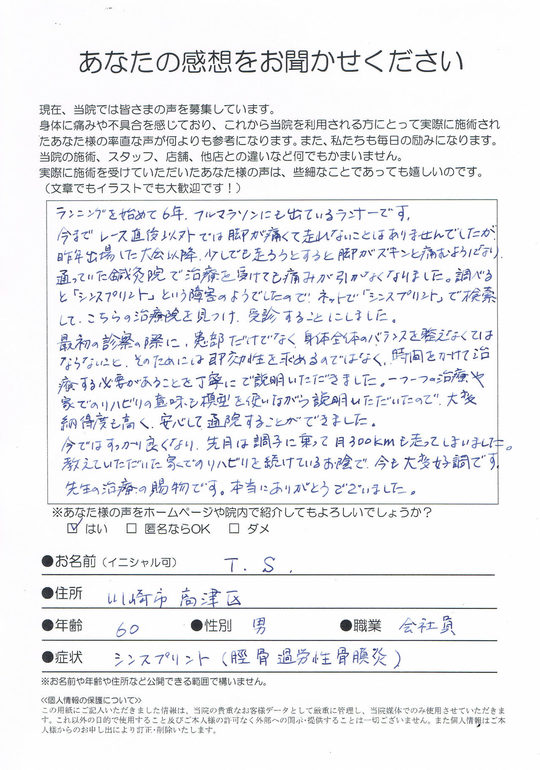 あなたの感想をお聞かせください
現在、当院では皆さまの声を募集しています。
身体に痛みや不具合を感じており、これから当院を利用される方にとって実際に施術され
たあなた様の率直な声が何よりも参考になります。また、私たちも毎日の励みになります。
当院の施術、スタッフ、店舗、他店との違いなど何でもかまいません。
実際に施術を受けていただいたあなた様の声は、些細なことであっても嬉しいのです。
（文章でもイラストでも大歓迎です！）
ランニングを始めて6年、フルマラソンにも出ているランナーです。
今まで レース直後以外では脚が痛くて走れないことはありませんでしたが、
昨年出場した大会以降、少しでも走ろうとすると脚がズキンと痛むようになり、
通っていた鍼灸院で治療を受けても痛みが引かなくなりました。調べる
と「シンスプリント」という障害のようでしたので、ネットで「シンスプリント」で検索
して、こちらの治療院を見つけ、受診することにしました。
最初の診察の際に、患部だけでなく身体全体のバランスを整えなくては
ならないこと、そのためには即効性を求めるのではなく、時間をかけて治
療する必要があることを丁寧にご説明いただきました。一つ一つの治療や
家でのリハビリの意味も模型を使いながら説明いただいたので、大変
納得度も高く、安心して通院することができました。
今ではすっかり良くなり、先月は調子に乗って月300kmも走ってしまいました。
教えていただいた家でのリハビリを続けているお陰で、今も大変好調です。
先生の治療の賜物です。本当にありがとうございました。
※あなた様の声をホームページや院内で紹介してもよろしいでしょうか？
☑ はい □ 匿名ならOK □ ダメ
●お名前（イニシャル可） T. S.
●住所 川崎市 高津区
●年齢 60 ●性別 男 ●職業 会社員
●症状 シンスプリント（脛骨過労性骨膜炎）
※お名前や年齢や住所など公開できる範囲で構いません。
≪個人情報の保護について≫
この用紙にご記入いただきました情報は、当院の貴重なお客様データとして厳重に管理し、当院媒体でのみ使用させていただきま
す。これ以外の目的で使用すること及びご本人様の許可なく外部への開示・提供することは一切ございません。また個人情報はご本
人様からのお申し出により訂正・削除いたします。